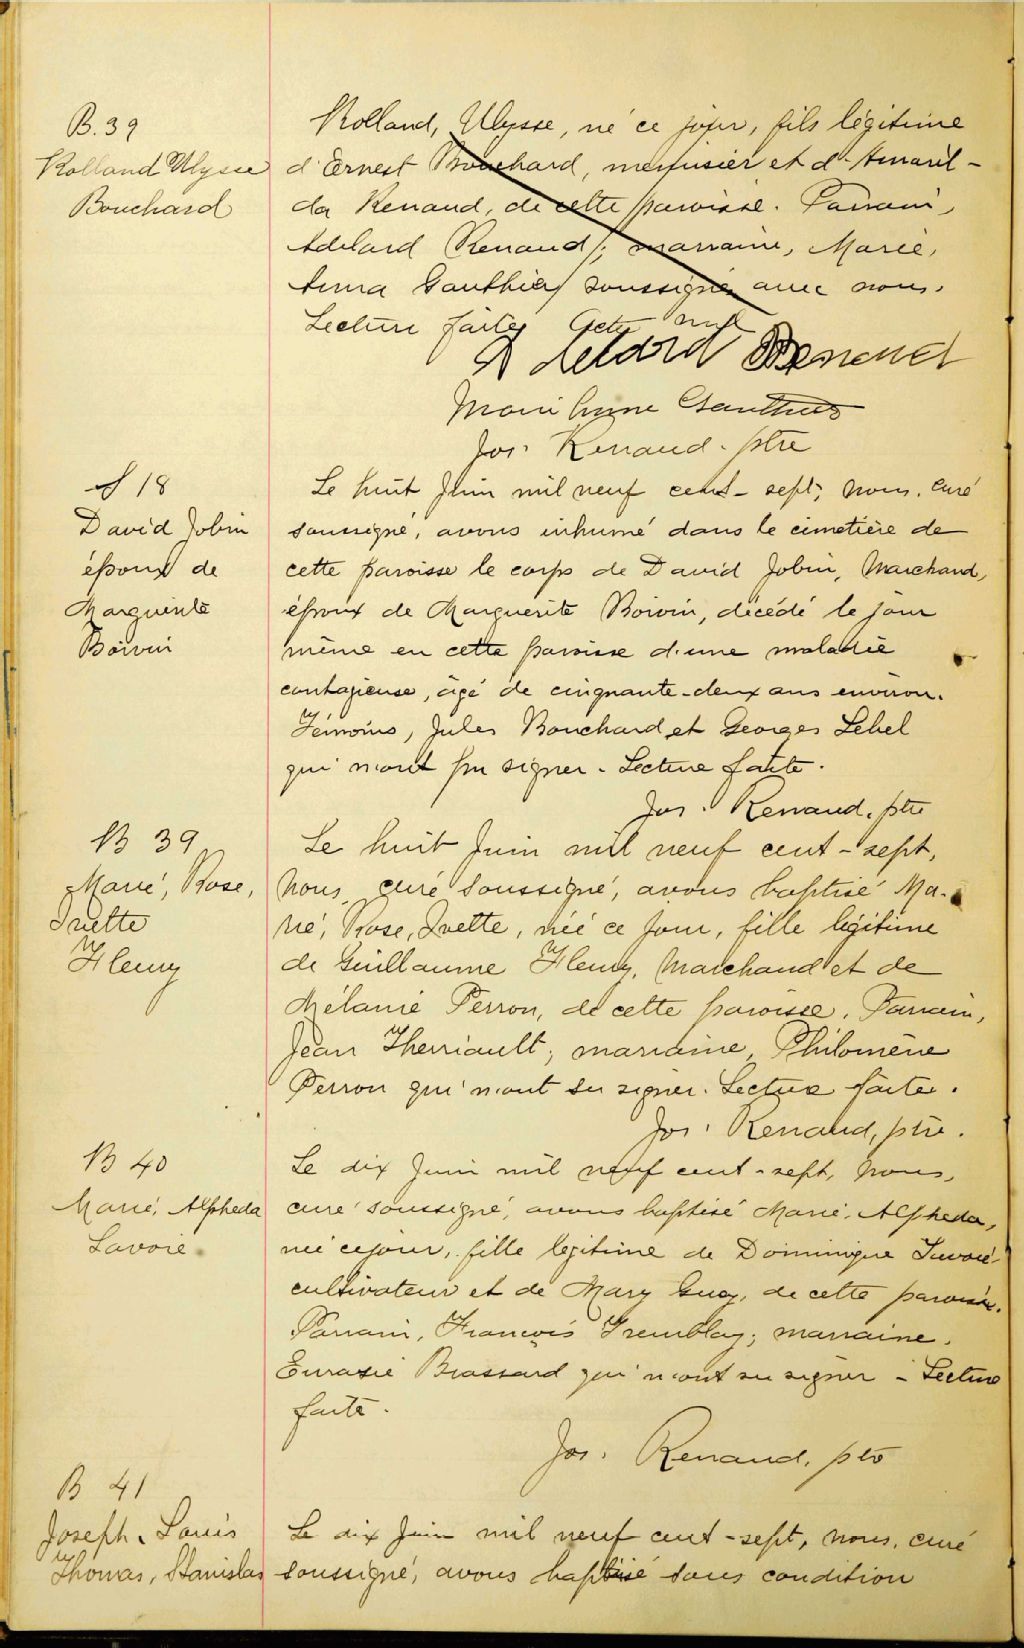 B. 39
Rolland Ulysse
Bouchard
Rolland, Ulysse, né ce jour, fils légitime
d'Ernest Bouchard, menuisier et d'Amaril-
da Renaud, de cette paroisse. Parrain,
Adélard Renaud; marraine, Marie,
Anna Gauthier soussignés avec nous.
Lecture faite. Acte nul
Adélard Renaud
Marianne Gauthier
Jos. Renaud. ptre
S 18
David Jobin
époux de
Marguerite
Boivin
Le huit Juin mil neuf cent-sept, nous, curé
soussigné, avons inhumé dans le cimetière de
cette paroisse le corps de David Jobin, Marchand,
époux de Marguerite Boivin, décédé le jour
même en cette paroisse d'une maladie
contagieuse, âgé de cinquante-deux ans environ.
Témoins, Jules Bouchard et Georges Lebel
qui n'ont pu signer. Lecture faite.
Jos. Renaud, ptre
B 39
Marie, Rose,
Ivette
Fleury
Le huit Juin mil neuf cent-sept,
nous, curé soussigné, avons baptisé Ma-
rie, Rose, Ivette, née ce jour, fille légitime
de Guillaume Fleury, Marchand et de
Mélanie Perron, de cette paroisse. Parrain,
Jean Therriault; marraine, Philomène
Perron qui n'ont su signer. Lecture faite.
Jos. Renaud, ptre.
B 40
Marie, Alpheda
Lavoie
Le dix Juin mil neuf cent-sept, nous,
curé soussigné, avons baptisé Marie, Alpheda,
née ce jour, fille légitime de Dominique Lavoie
cultivateur et de Mary Guay, de cette paroisse.
Parrain, François Tremblay; marraine,
Eurasie Brassard qui n'ont su signer - Lecture
faite.
Jos. Renaud, ptre
B 41
Joseph, Louis
Thomas, Stanislas
Le dix Juin mil neuf cent-sept, nous, curé
soussigné, avons baptisé sous condition